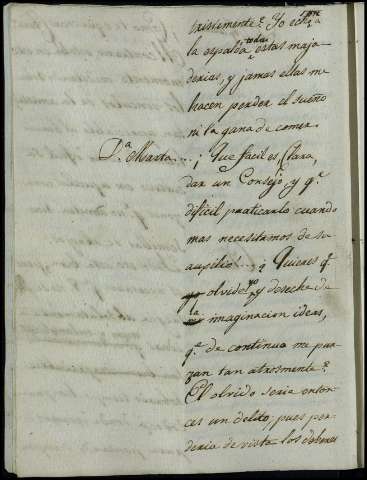 tristemente? Yo echo
la espalda a todas estas maja
derias, y jamas ellas me
hacen perder el sueño
ni la gana de comer.
D.ª Marta.... ¡ Que facil es, Clara,
dar un Consejo, y q.e
dificil praticarlo cuando
mas necesitamos de su
ausilio!.... ¿ Quieres q.e
yo olvide, y deseche de
la imaginacion ideas,
q.e de continuo me pun
zan tan atrosmente?
El olvido seria enton-
ces un delito, pues per-
deria de vista los deberes